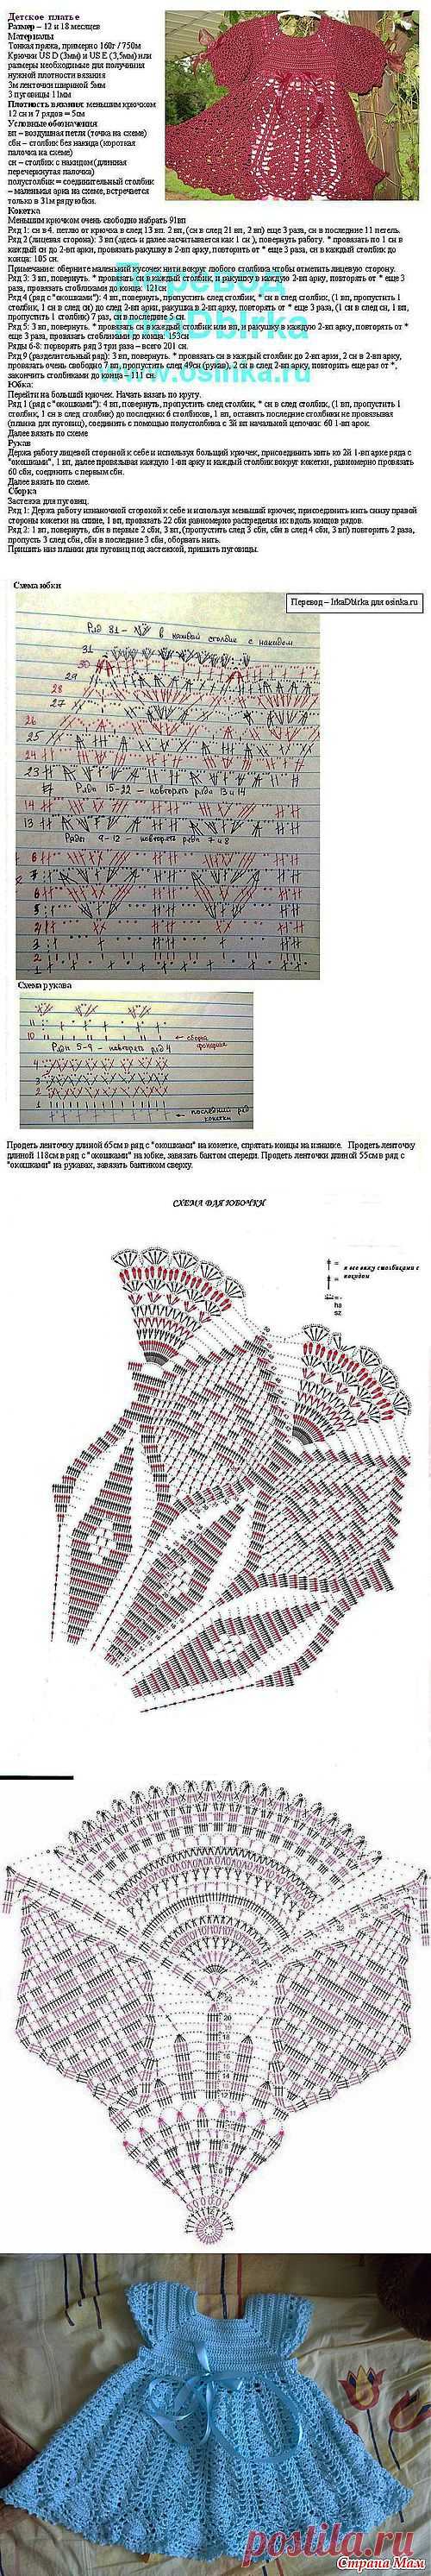 Детское платье
Размер – 12 и 18 месяцев
Материалы
Тонкая пряжа, примерно 160г / 750м
Крючки US D (3мм) и US E (3,5мм) или
размеры необходимые для получения
нужной плотности вязания
3м ленточки шириной 5мм
3 пуговицы 11мм
Плотность вязания: меньшим крючком
12 сн и 7 рядов = 5см
Условные обозначения
вп – воздушная петля (точка на схеме)
сбн – столбик без накида (короткая
палочка на схеме)
сн – столбик с накидом (длинная
перечеркнутая палочка)
полустолбик = соединительный столбик
– маленькая арка на схеме, встречается
только в 31м ряду юбки.
Кокетка
Меньшим крючком очень свободно набрать 91вп
Ряд 1: сн в 4. петлю от крючка, в след 13 вп. 2 вп, (сн в след 21 вп, 2 вп) еще 3 раза, сн в последние 11 петель.
Ряд 2 (лицевая сторона): 3 вп (здесь и далее засчитывается как 1 сн), повернуть работу. * провязать по 1 сн в
каждый сн до 2-вп арки, провязать ракушку в 2-вп арку, повторить от * еще 3 раза, сн в каждый столбик до
конца: 105 сн.
Примечание: оберните маленький кусочек нити вокруг любого столбика чтобы отметить лицевую сторону.
Ряд 3: 3 вп, повернуть. * провязать сн в каждый столбик, и ракушку в каждую 2-вп арку, повторять от * еще 3
раза, провязать столбиками до конца. 121сн
Ряд 4 (ряд с "окошками"): 4 вп, повернуть, пропустить след столбик, * сн в след столбик, (1 вп, пропустить 1
столбик, 1 сн в след сн) до след 2-вп арки, ракушка в 2-вп арку, повторить от * еще 3 раза, (1 сн в след сн, 1 вп,
пропустить 1 столбик) 7 раз, сн в последние 5 сн.
Ряд 5: 3 вп, повернуть. * провязать сн в каждый столбик или вп, и ракушку в каждую 2-вп арку, повторять от *
еще 3 раза, провязать столбиками до конца. 153сн
Ряды 6-8: повторять ряд 3 три раза – всего 201 сн.
Ряд 9 (разделительный ряд): 3 вп, повернуть. * провязать сн в каждый столбик до 2-вп арки, 2 сн в 2-вп арку,
провязать очень свободно 7 вп, пропустить след 49сн (рукав), 2 сн в след 2-вп арку, повторить еще раз от *,
закончить столбиками до конца – 111 сн.
Юбка:
Перейти на больший крючок. Начать вязать по кругу.
Ряд 1 (ряд с "окошками"): 4 вп, повернуть, пропустить след столбик, * сн в след столбик, (1 вп, пропустить 1
столбик, 1 сн в след столбик) до последних 6 столбиков, 1 вп, оставить последние столбики не провязывая
(планка для пуговиц), соединить с помощью полустолбика с 3й вп начальной цепочки: 60 1-вп арок.
Далее вязать по схеме
Рукав
Держа работу лицевой стороной к себе и используя больший крючек, присоединить нить ко 2й 1-вп арке ряда с
"окошками", 1 вп, далее провязывая каждую 1-вп арку и каждый столбик вокруг кокетки, равномерно провязать
60 сбн, соединить с первым сбн.
Далее вязать по схеме.
Сборка
Застежка для пуговиц.
Ряд 1: Держа работу изнаночной стороной к себе и используя меньший крючек, присоединить нить снизу правой
стороны кокетки на спине, 1 вп, провязать 22 сбн равномерно распределяя их вдоль концов рядов.
Ряд 2: 1 вп, повернуть, сбн в первые 2 сбн, 3 вп, (пропустить след 3 сбн, сбн в след 4 сбн, 3 вп) повторить 2 раза,
пропусть 3 след сбн, сбн в последние 3 сбн, оборвать нить.
Пришить низ планки для пуговиц под застежкой, пришить пуговицы.
Перевод
IrkaDbIrka
www.osinka.ru
Схема юбки
Перевод – IrkaDbIrka для osinka.ru
Ряд 31 – в каждый столбик с накидом
31
30
29
28
27
26
25
24
23
Ряды 15-22 – повторять ряды 13 и 14
14
13
Ряды 9-12 – повторять ряды 7 и 8
8
7
6
5
4
3
2
1
Схема рукава
11
10
Ряды 5-9 – повторять ряд 4
4
3
2
1
последний ряд
кокетки
Продеть ленточку длиной 65см в ряд с "окошками" на кокетке, спрятать концы на изнанке. Продеть ленточку
длиной 118см в ряд с "окошками" на юбке, завязать бантом спереди. Продеть ленточки длиной 55см в ряд с
"окошками" на рукавах, завязать бантиком сверху.
СХЕМА ДЛЯ ЮБОЧКИ
я все вяжу столбиками с
накидом
postila.ru
Страна Мам